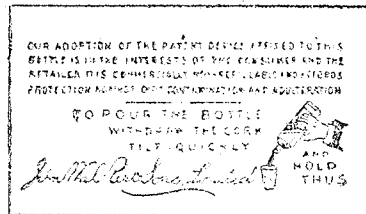 OUR ADOPTION OF THE PATENT DEVICE AFFIXED TO THIS
BOTTLE IS IN THE INTERESTS OF THE CONSUMER AND THE
RETAILER. IT IS COMMERCIALLY NON-REFILLABLE AND AFFORDS
PROTECTION AGAINST CONTAMINATION AND ADULTERATION
TO POUR THE BOTTLE
WITHDRAW THE CORK
TILT QUICKLY
AND
HOLD
THUS
Limited